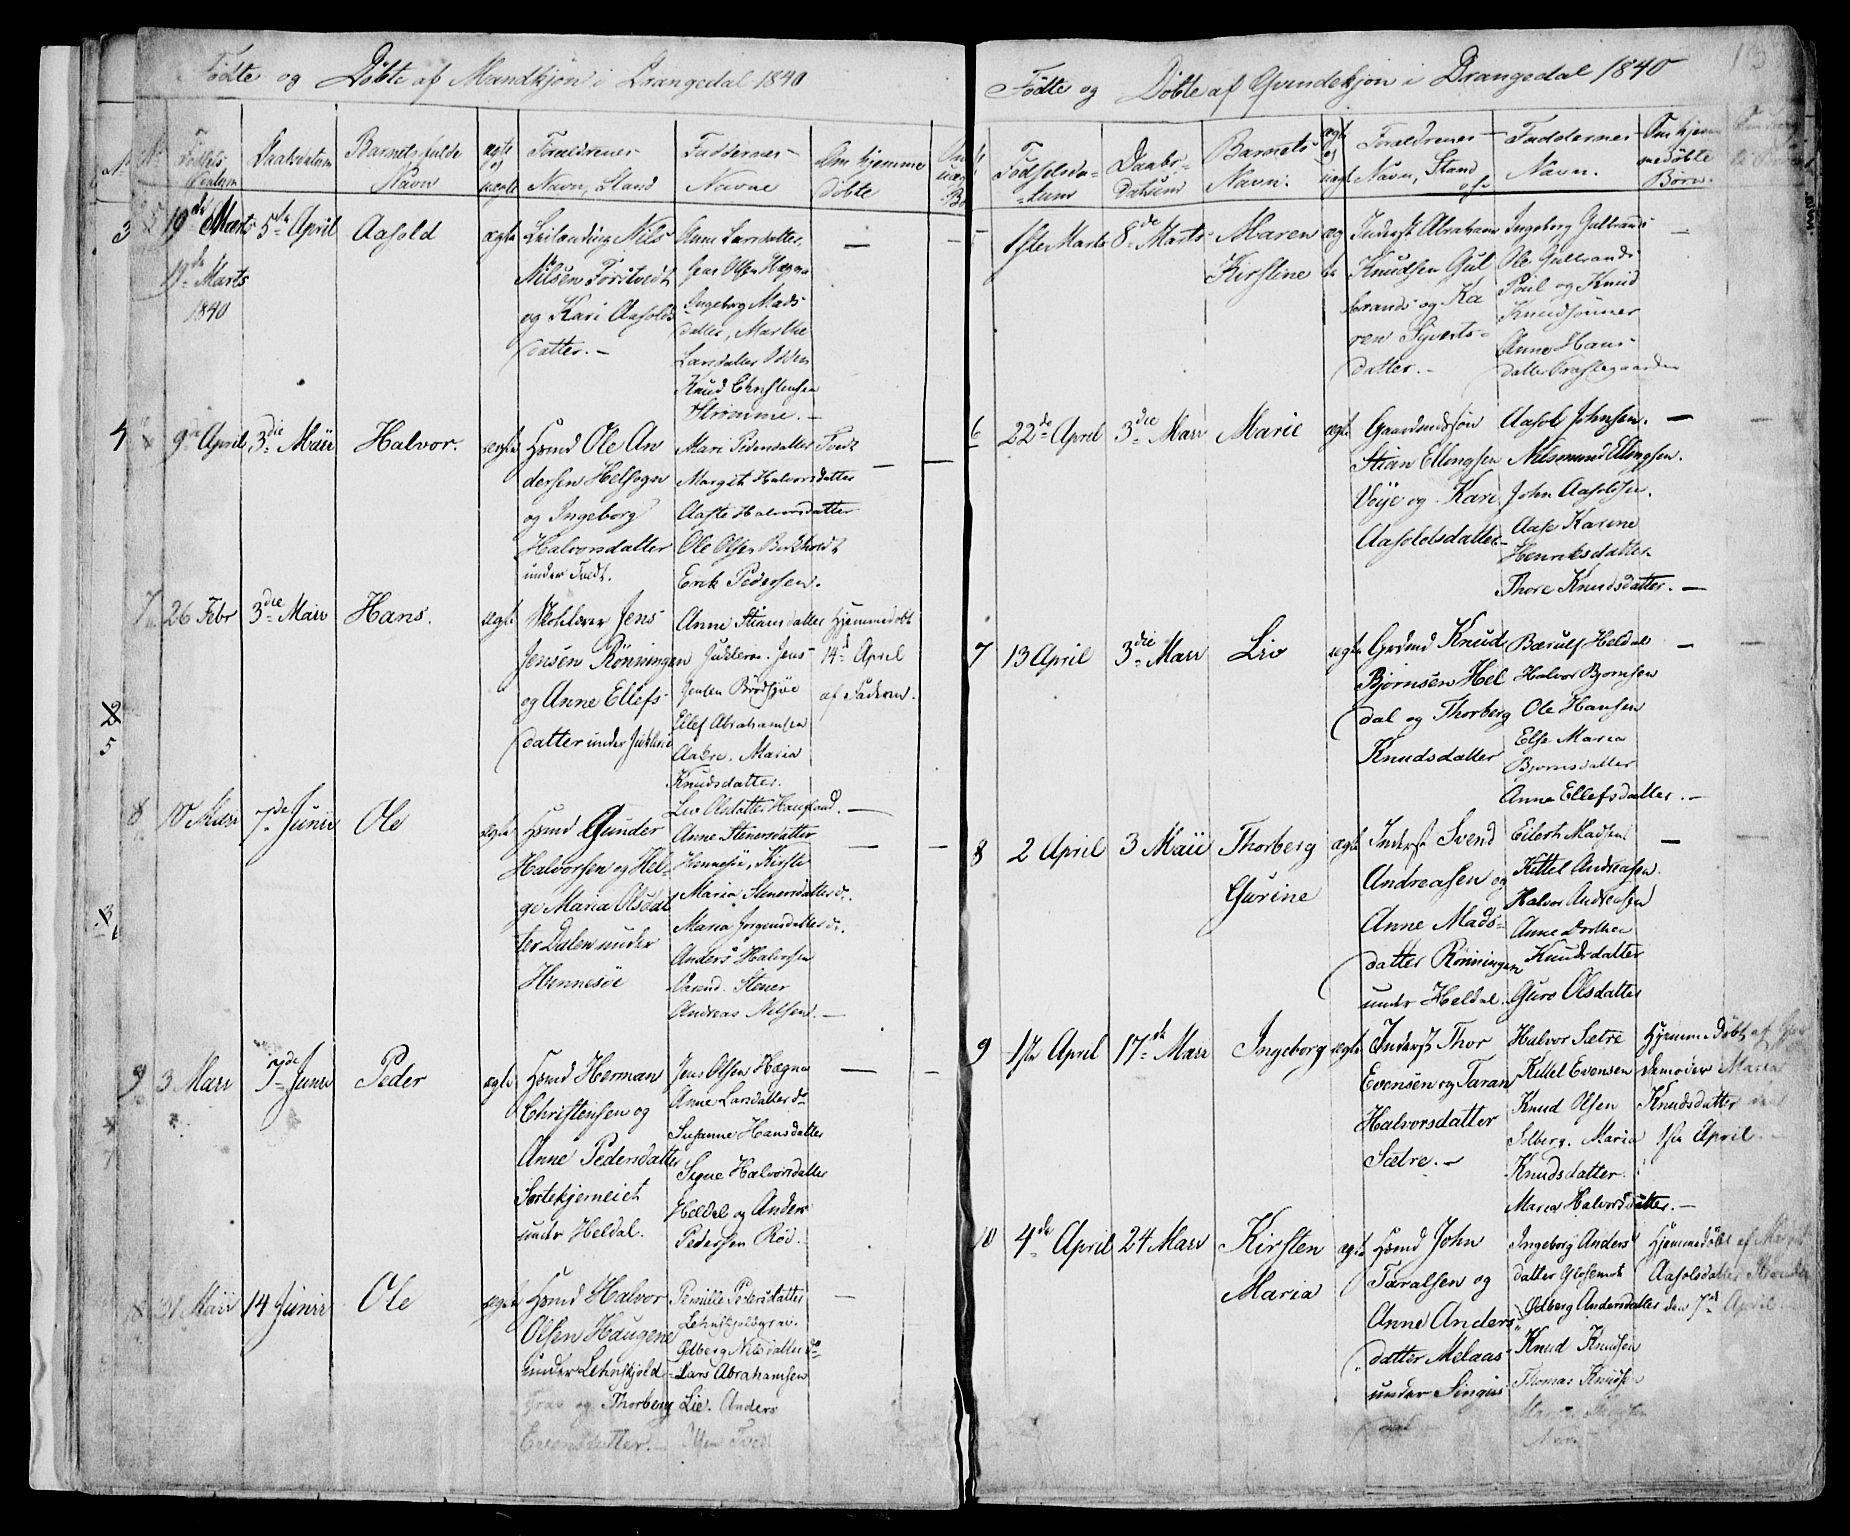 Fødte og Døbte af Mandkjøn i Drangedal 1840
Fødsels Datum
Daabsdatum
Barnets fulde
Navn
ægte
og
uægte
Forældrenes
Navn, Stand
Faddernes
Navne
Om hjemme
døbte
3
19de Marts
5te April
Aasold
ægte
Leilænding Nils
Nilsen Forstvedt
og Kari Aasolds
datter.
19de Marts
1840
Anne Larsdatter,
Jens Olsen Hægna
Ingeborg Mads
datter, Marthe
Larsdatter
Knud Christensen
Strømme.
4
9de April
3die Maii
Halvor.
ægte
Hsmd Ole An
dersen Helfogn
og Ingeborg
Halvorsdatter
under Tvedt.
Mari Pedersdatter Tvedt
Margit Halvorsdatter
Aaste Halvorsdatter
Ole Olsen
Erik Pedersen.
7
26 Febr
3die Maii
Hans.
ægte
Jens
Jensen Rønningen
og Anne Ellefs
datter under
Anne Stiansdatter
Jens
Jensen Brødsjøe
Ellef Abrahamsen
Aakre. Maria
Knudsdatter.
Hjemmedøbt
14de April
af Faderen.
8
10 Maii
7de Junii
Ole
ægte
Hsmd Gunder
Halvorsen og Hel-
ge Maria Olsdat
ter Dalen under
Hennesøe
Liv Olsdatter Haugland.
Anne Stenersdatter
Hennesøe, Kirste
Maria Stenersdatter do.
Maria Jørgensdatter do.
Anders Halvorsen
Stener
Andreas Nilsen.
9
3 Maii
7de Junii
Peder
ægte
Hsmd Herman
Christensen og
Anne Pedersdatter
Sortekjerneiet
under Heldal.
Jens Olsen Hægna
Anne Larsdatter do
Susanne Hansdatter
Signe Halvorsdatter
Heldal og Anders
Pedersen Rød.
21 Maii
14 Junii
Ole
ægte
Hsmd Halvor
Olsen Haugene
under Lehnskjold-
Grav og Thorberg
Evensdatter.
Pernille Pedersdatter
Lehnskjoldgrav.
Odberg Nilsdatter do
Lars Abrahamsen
Lie. Anders
Olsen Tved
Fødte og Døbte af Qvindekjøn i Drangedal 1840
Fødselsda-
tum
Daabs-
Datum
Barnets
Navn.
ægte
og
uægte
Forældrenes
Navn, Stand
Faddernes
Navn.
Om hjem
medøbte
Børn.
5
1ste Marts
8de Marts
Maren
Kirstine
ægte
Inderst Abraham
Knudsen Gul
brands og Ka
ren Syverts-
datter.
Ingeborg Gulbrands
Ole Gulbrands
Poul og Knud
Knudsønner
Anne Hans-
datter Præstegaarden
6
22de April
3die Maii
Marie
ægte
Gaardmandsøn
Stian Ellingsen
Veye og Kari
Aasoldsdatter
Aasol Johnsen.
Nilsmund Ellingsen.
John Aasoldsen.
Aase Karine
Henriksdatter
Thore Knudsdatter.
7
13 April
3die Maii
Liv
ægte
Grdmd Knud
Bjørnsen Hel
dal og Thorberg
Knudsdatter
Bærulf Heldal
Halvor Bjørnsen
Ole Hansen
Else Maria
Bjørnsdatter
Anne Ellefsdatter.
8
2 April
3 Maii
Thorberg
Gurine
ægte
Inderst Svend
Andreasen og
Anne Mads-
datter Rønningen
under Heldal.
Eilert Madsen
Kittel Andreasen.
Halvor Andreasen
Anne Dorthea
Knudsdatter
Guro Olsdatter
9
1ste April
17de Maii
Ingeborg
ægte
Inderst Thor
Evensen og Taran
Halvorsdatter
Sætre.
Halvor Sætre
Kittel Evensen
Knud Olsen
Solberg. Maria
Knudsdatter
Maria Halvorsdatter.
Hjemmedøbt af Jor
demoder Maria
Knudsdatter den
1ste April
10
4de April
24 Maii
Kirsten
Maria
ægte
Hsmd John
Taralsen og
Anne Anders
datter Melaas
under
Ingeborg Anders
datter Gjosemot
Odberg Andersdatter
Knud Knudsen
Thomas Knudsen
Hjemmedøbt af
Aasolsdatter
den 7de April